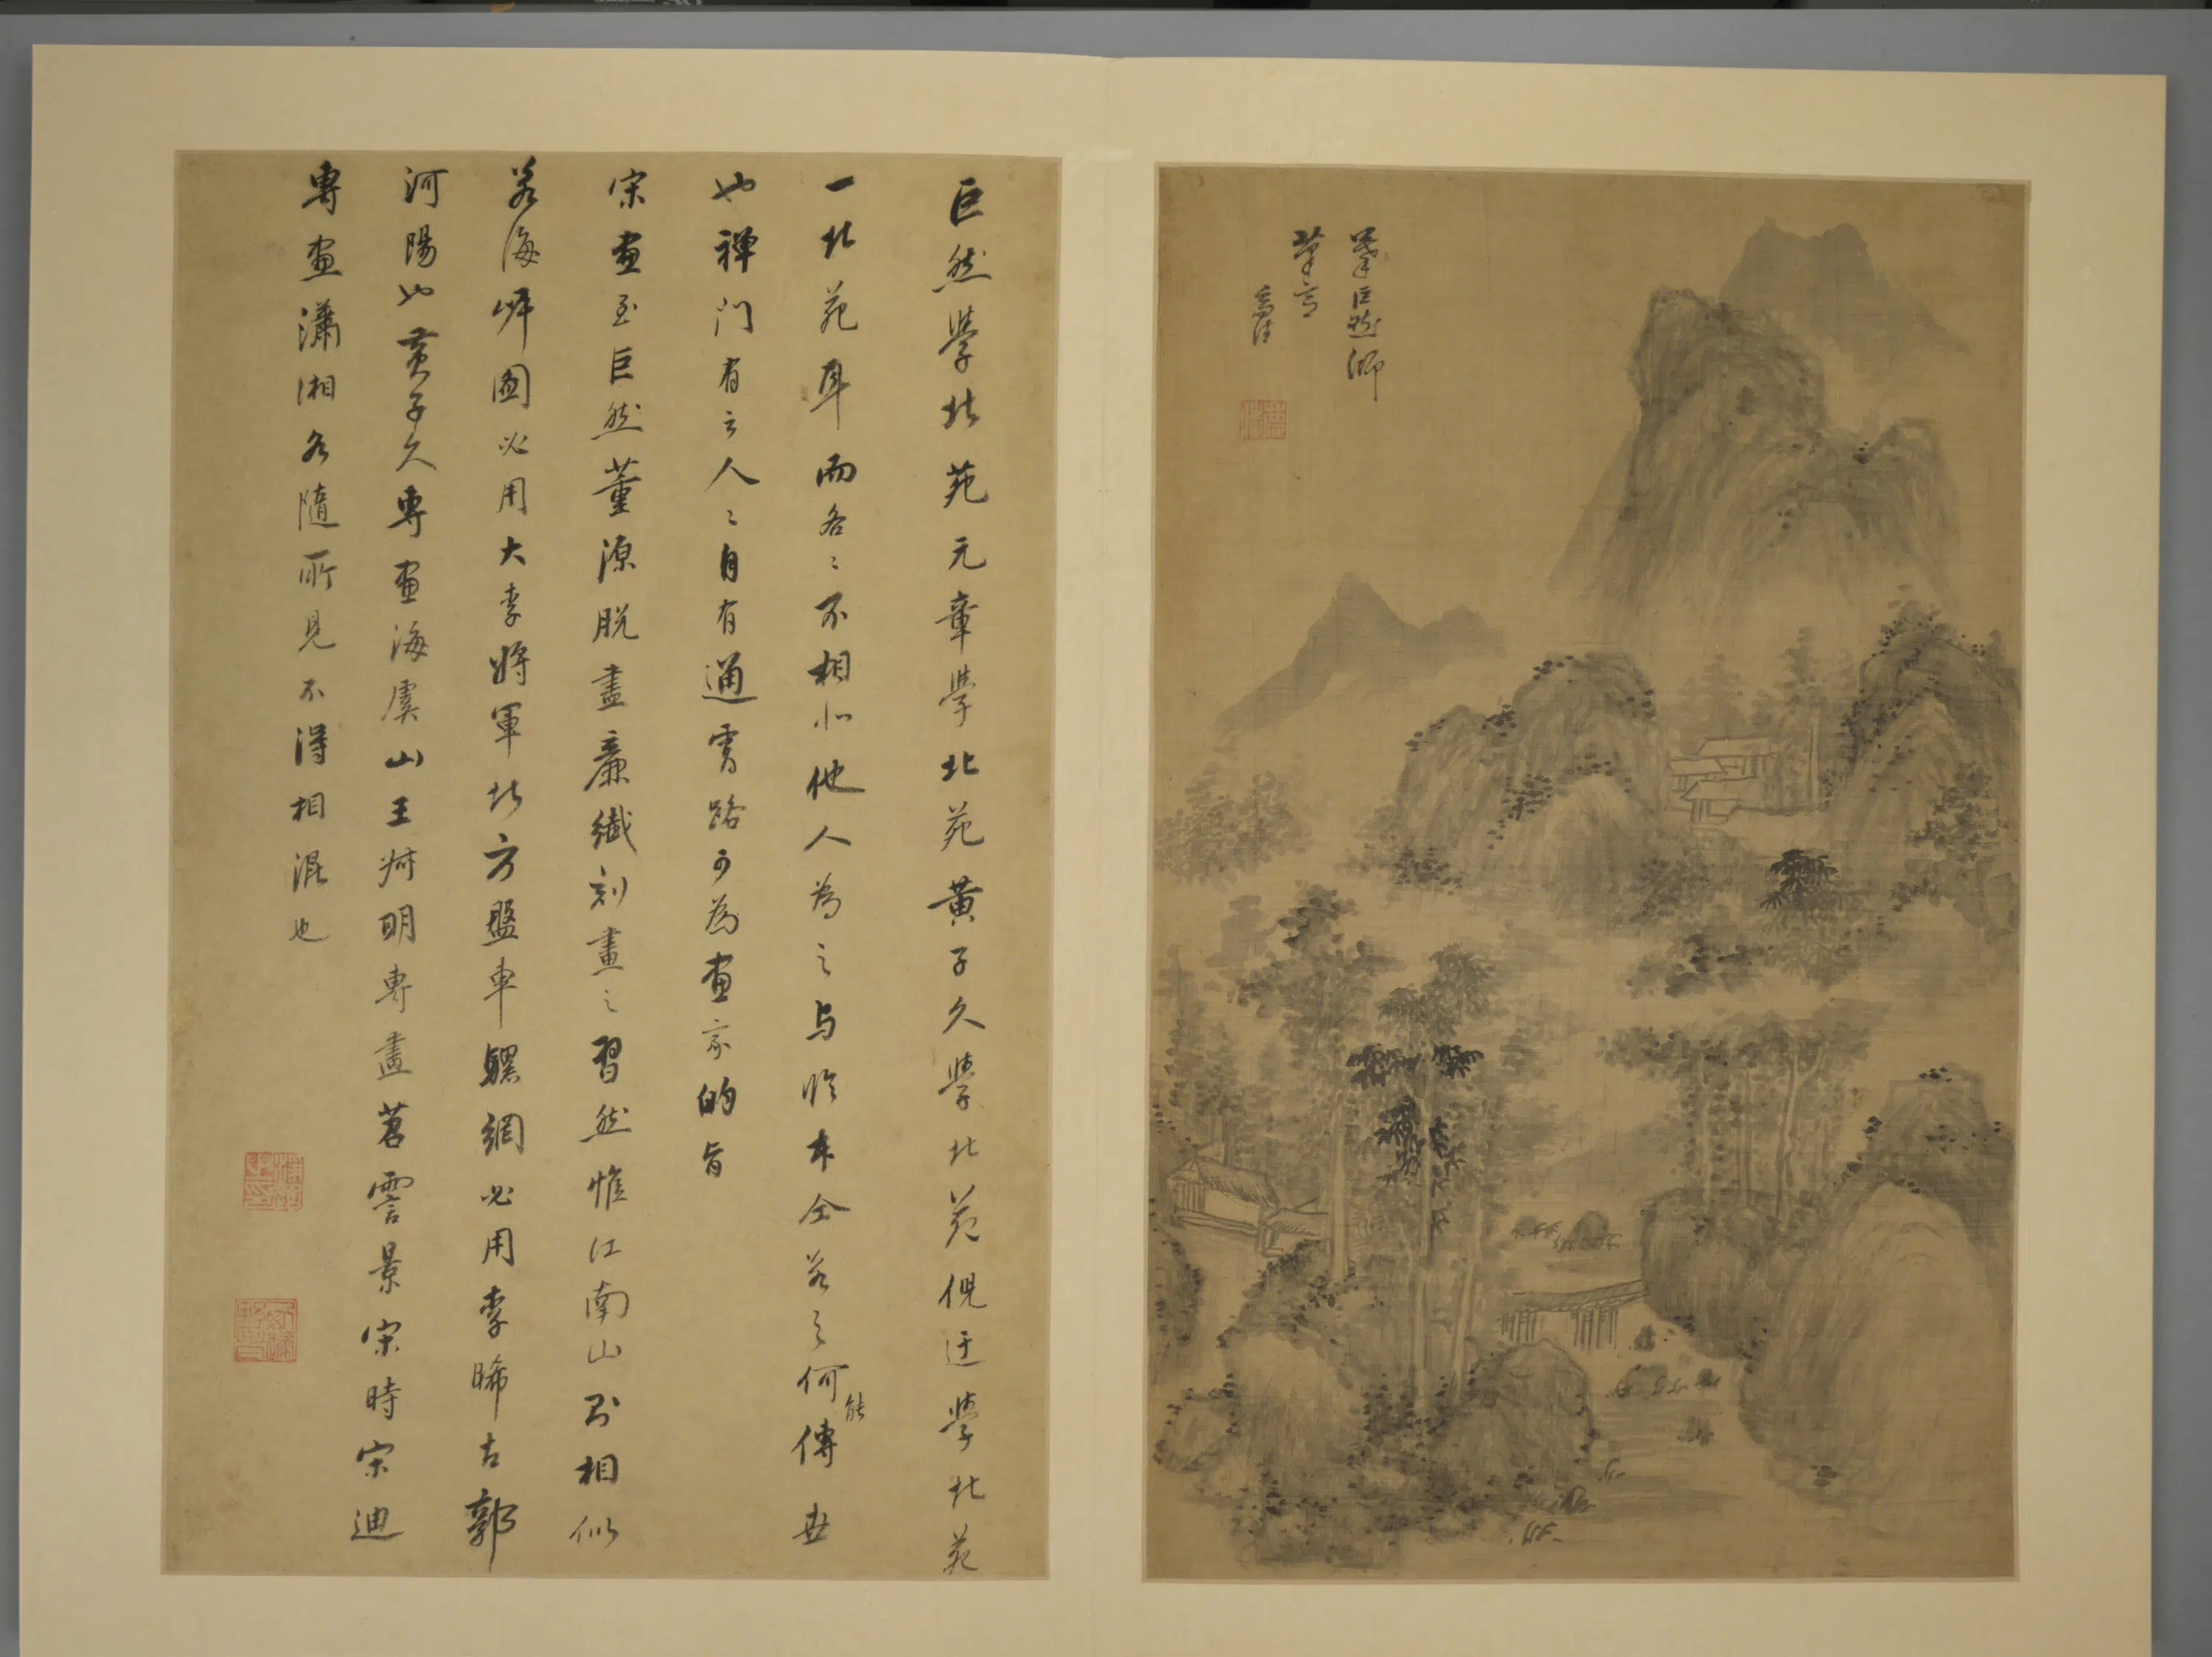 摹巨然師
筆意
玄宰
巨然學北苑元章學北苑黃子久學北苑倪迂學北苑
一北苑耳而各〻不相似他人為之与臨本仝若之何能傳世
也禅門有云人〻自有通霄路可為畫家的旨
宋畫至巨然董源脱盡廉纖刻畫之習然惟江南山則相似
若海岸圖必用大李將軍北方盤車騾綱必用李晞古郭
河陽也黃子久專畫海虞山王叔明專畫苕霅景宋時宋迪
專畫瀟湘各隨所見不得相混也